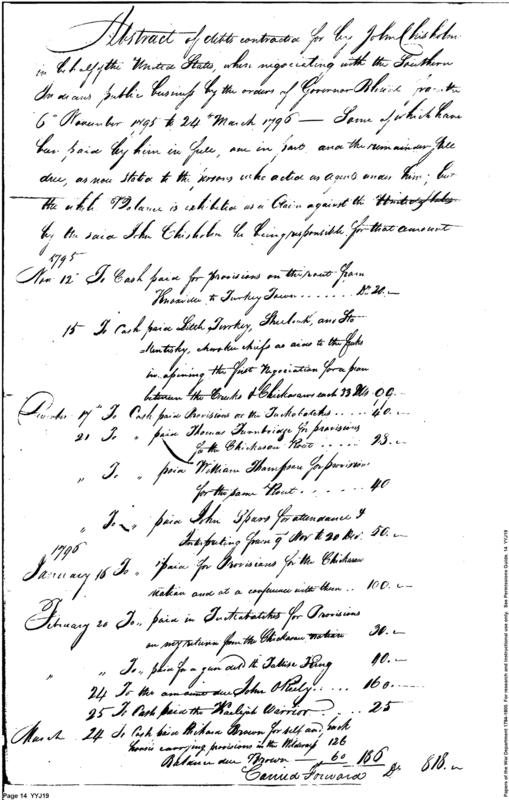 Abstract of debts contracted for by John Chisholm
in behalf of the United States, when negociating with the Southern
Indians public business by the orders of Governor Blount from the
6th November, 1795 to 24th March 1796 — Some of which have
been paid by him in full, one in part and the remainder full
due, as now stated to the persons who acted as agents under him; but
the whole Balance is exhibited as a Claim against the United States
by the said John Chisholm he being responsible for that amount
1795
Nov 12 To Cash paid for provisions on the rout from
Knoxville to Turkey Town ...... Ds 20.—
15 To Cash paid Little Turkey, and
cherokee chiefs as aids to the
in opening the first Negociation for a peace
between the Creeks & Chickasaws each 33 Ds 00.—
December 17th To Cash paid Provisions on the Tuckabatches .... 40.—
21 To " paid Thomas Turnbridge for provisions
for the Chickasaw Rout ..... 28.—
" To " paid William Thompson for provisions
for the same Rout ...... 40
" To " paid John Spears for attendance &
Interpreting from 9 Nov to 20 Dec. 50.—
1796
January 16 To " paid for Provisions for the Chickasaw
nation and at a conference with them .. 100.—
February 20 To " paid in Tuckabatches for Provisions
on my return from the Chickasaw nation 30.—
" " To " paid for a gun deld. the Tallise King 40.—
24 To the amount due John OReely .... 160.—
25 To Cash paid the Warrior ..... 25
March 24 To Cash paid Richard Brown for self and pack
horses carrying provisions in the 126
Balance due Brown — 60 186
Carried Forward Ds 818.—
Page 14 YYJ19
Papers of the War Department 1784-1800. For research and instructional use only. See Permissions Guide. 14 YYJ19